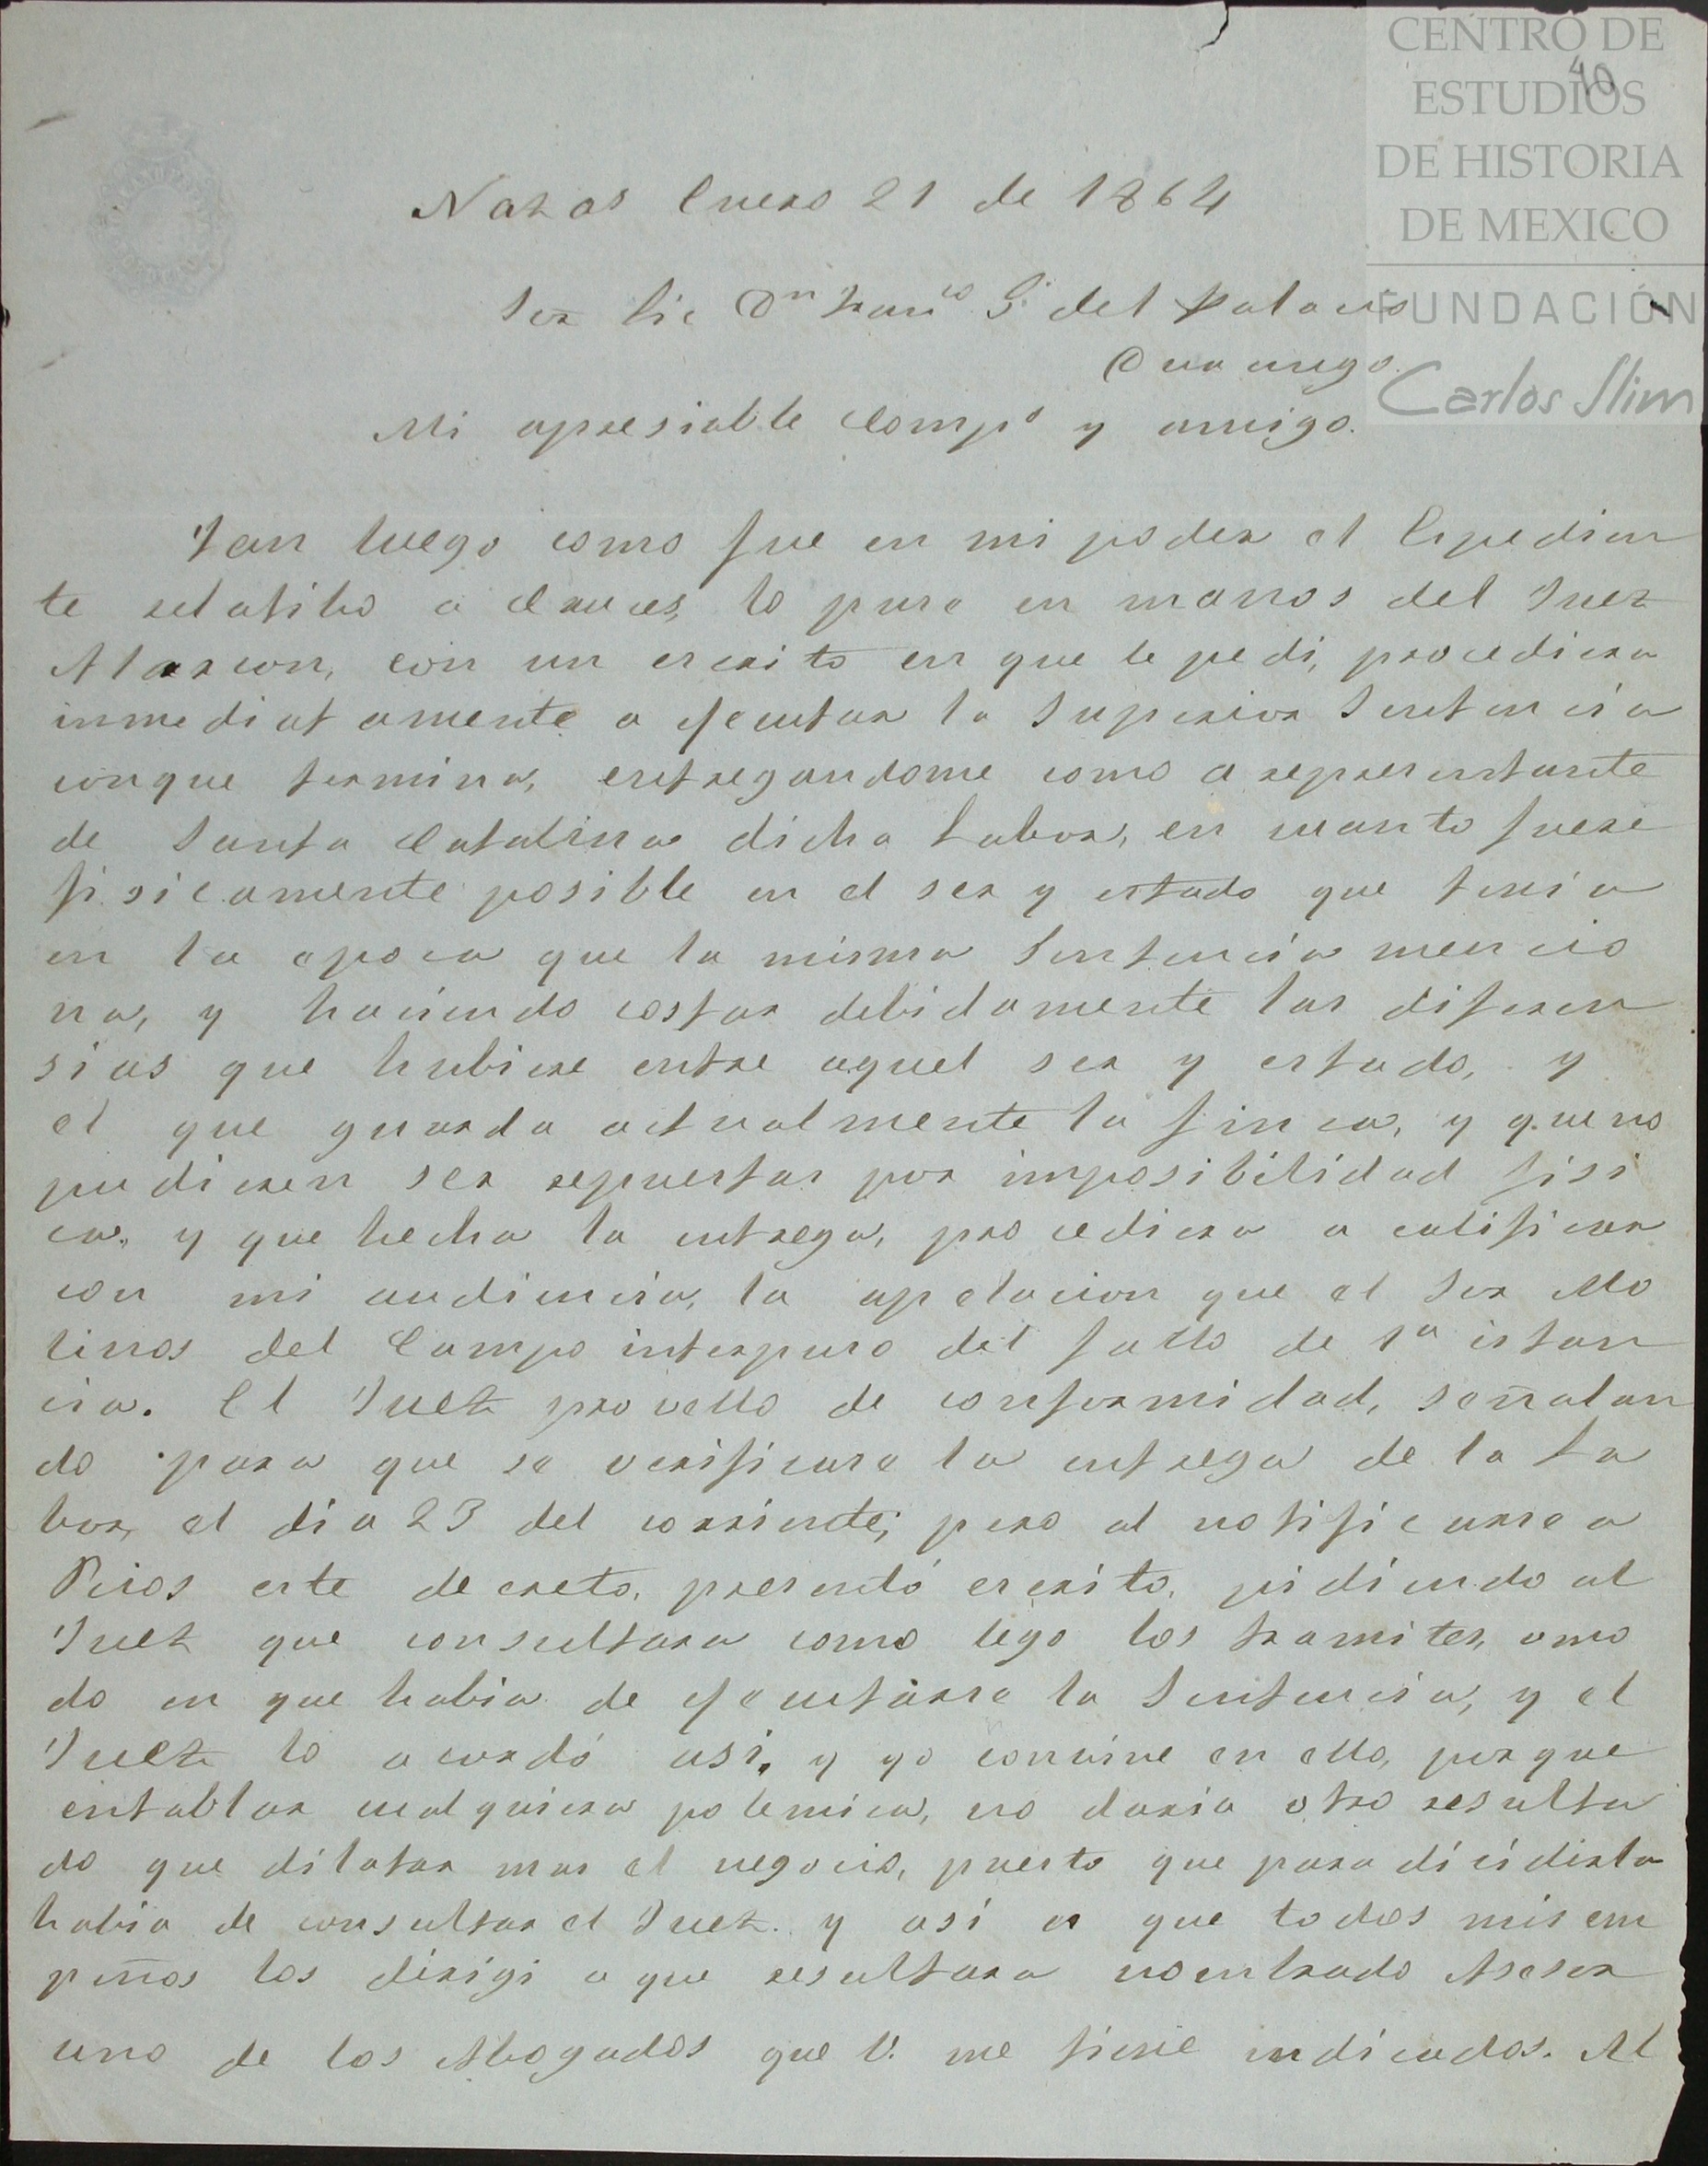 CENTRO DE
ESTUDIOS
DE HISTORIA
DE MEXICO
FUNDACIÓN
Carlos Slim
40
Nazas Enero 21 de 1864
Sor Lic Dn Franco G. del Palacio
Durango.
Mi apresiable Compo y amigo.
Tan luego como fue en mi poder el Espedien
te relatibo a Cruces, lo puse en manos del Juez
Alarcon, con un escrito en que le pedi, procediera
inmediatamente a ejecutar la Superior Sentencia
conque termina, entregandome como a representante
de Santa Catalina dicha Labor, en cuanto fuese
fisicamente posible en el ser y estado que tenia
en la epoca que la misma Sentencia mencio
na, y haciendo costar debidamente las diferen
sias que hubiese entre aquel ser y estado, y
el que guarda actualmente la finca, y que no
pudiesen ser repuestas por imposibilidad fisi
ca, y que hecha la entrega, procediera a calificar
con mi audiencia, la apelacion que el Sor Mo
linos del Campo interpuso del fallo de 1a istan
cia. El Juez provello de conformidad, señalan
do para que se verificase la entrega de la La
bor, el dia 23 del corriente; pero al notificarse a
Rios este decreto, presentó escrito, pidiendo al
Juez que consultara como lego los tramites, o mo
do en que habia de ejecutarse la Sentencia, y el
Juez lo acordó asi, y yo convine en ello, porque
entablar cualquiera polemica, no daria otro resulta
do que dilatar mas el negocio, puesto que para dicidirla
habia de consultar el Juez. y asi es que todos mis em
peños los dirigi a que resultara nombrado Asesor
uno de los Abogados que V. me tiene indicados. Al